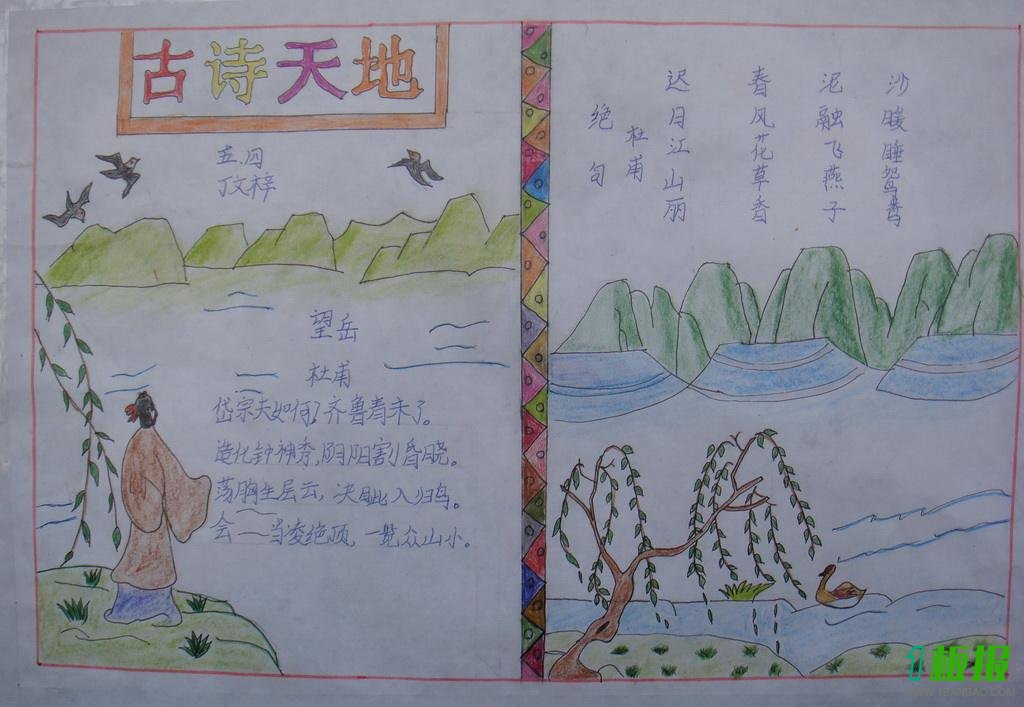 古诗天地
五.四
丁文梓
望岳
杜甫
岱宗夫如何?齐鲁青未了。
造化钟神秀,阴阳割昏晓。
荡胸生层云,决眦入归鸟。
会一当凌绝顶,一览众山小。
绝句
杜甫
迟日江山丽
春风花草香
泥融飞燕子
沙暖睡鸳鸯
1板报
WWW.1BANBAO.COM